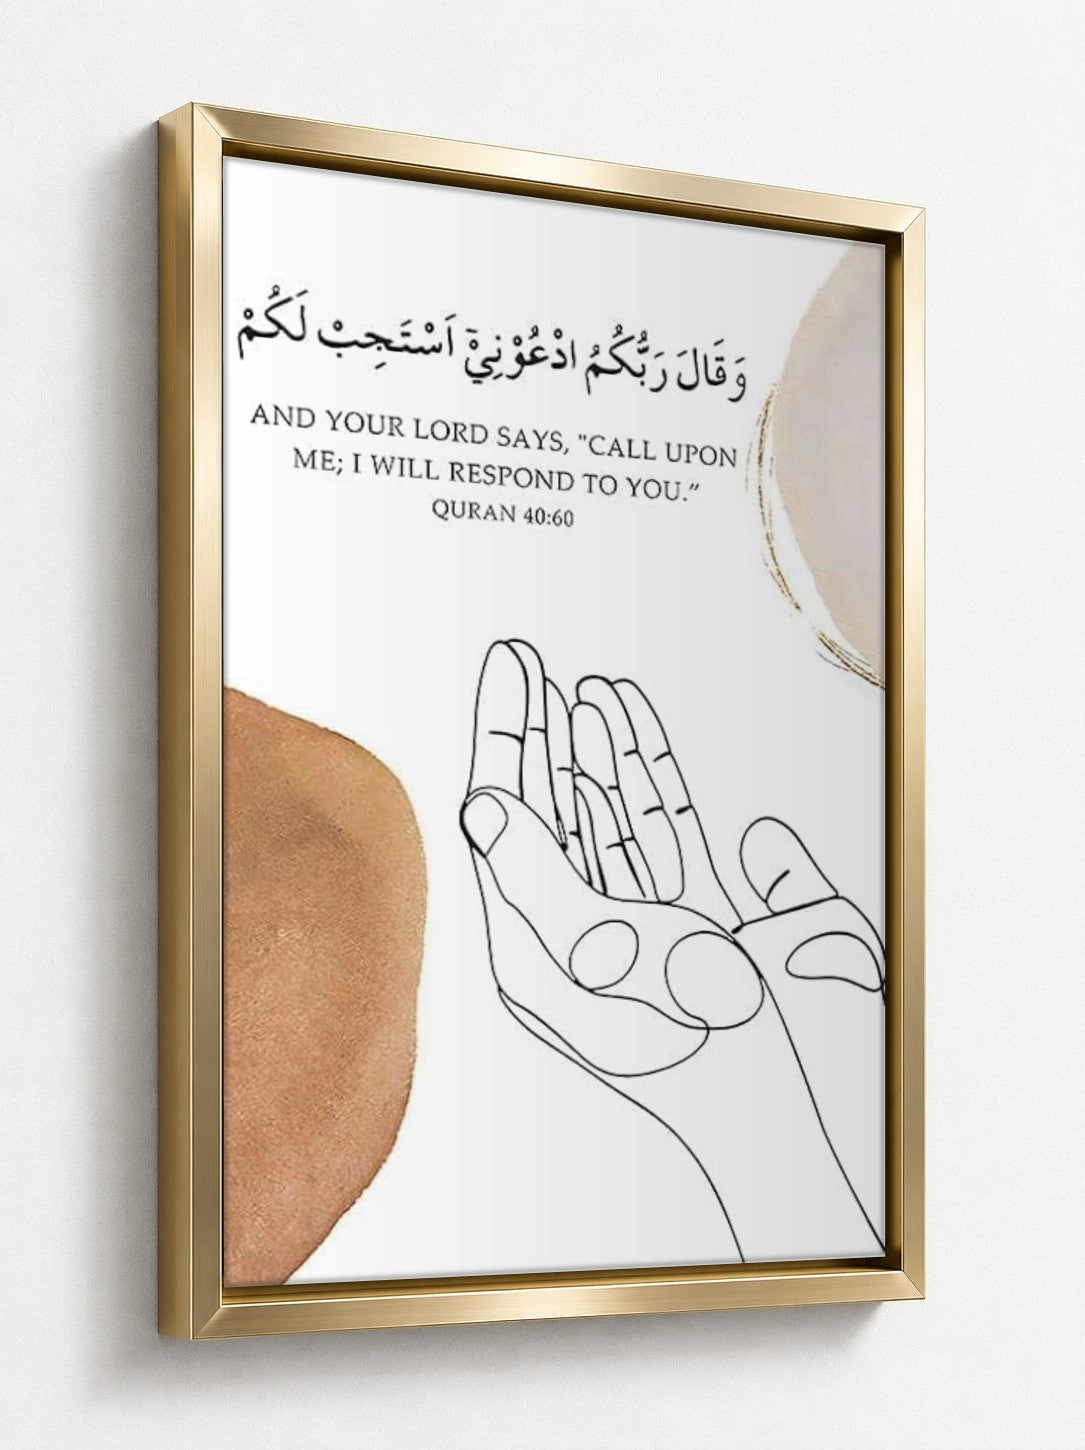 وَقَالَ رَبُّكُمُ ادْعُوْنِيْٓ اَسْتَجِبْ لَكُمْ
AND YOUR LORD SAYS, "CALL UPON
ME; I WILL RESPOND TO YOU.”
QURAN 40:60